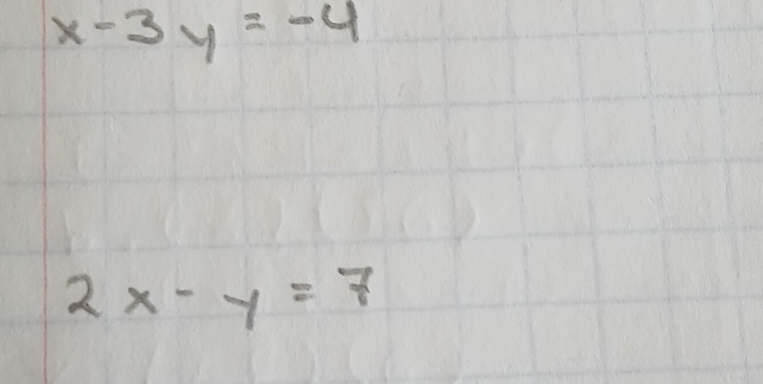 x - 3y = -4
2x - y = 7